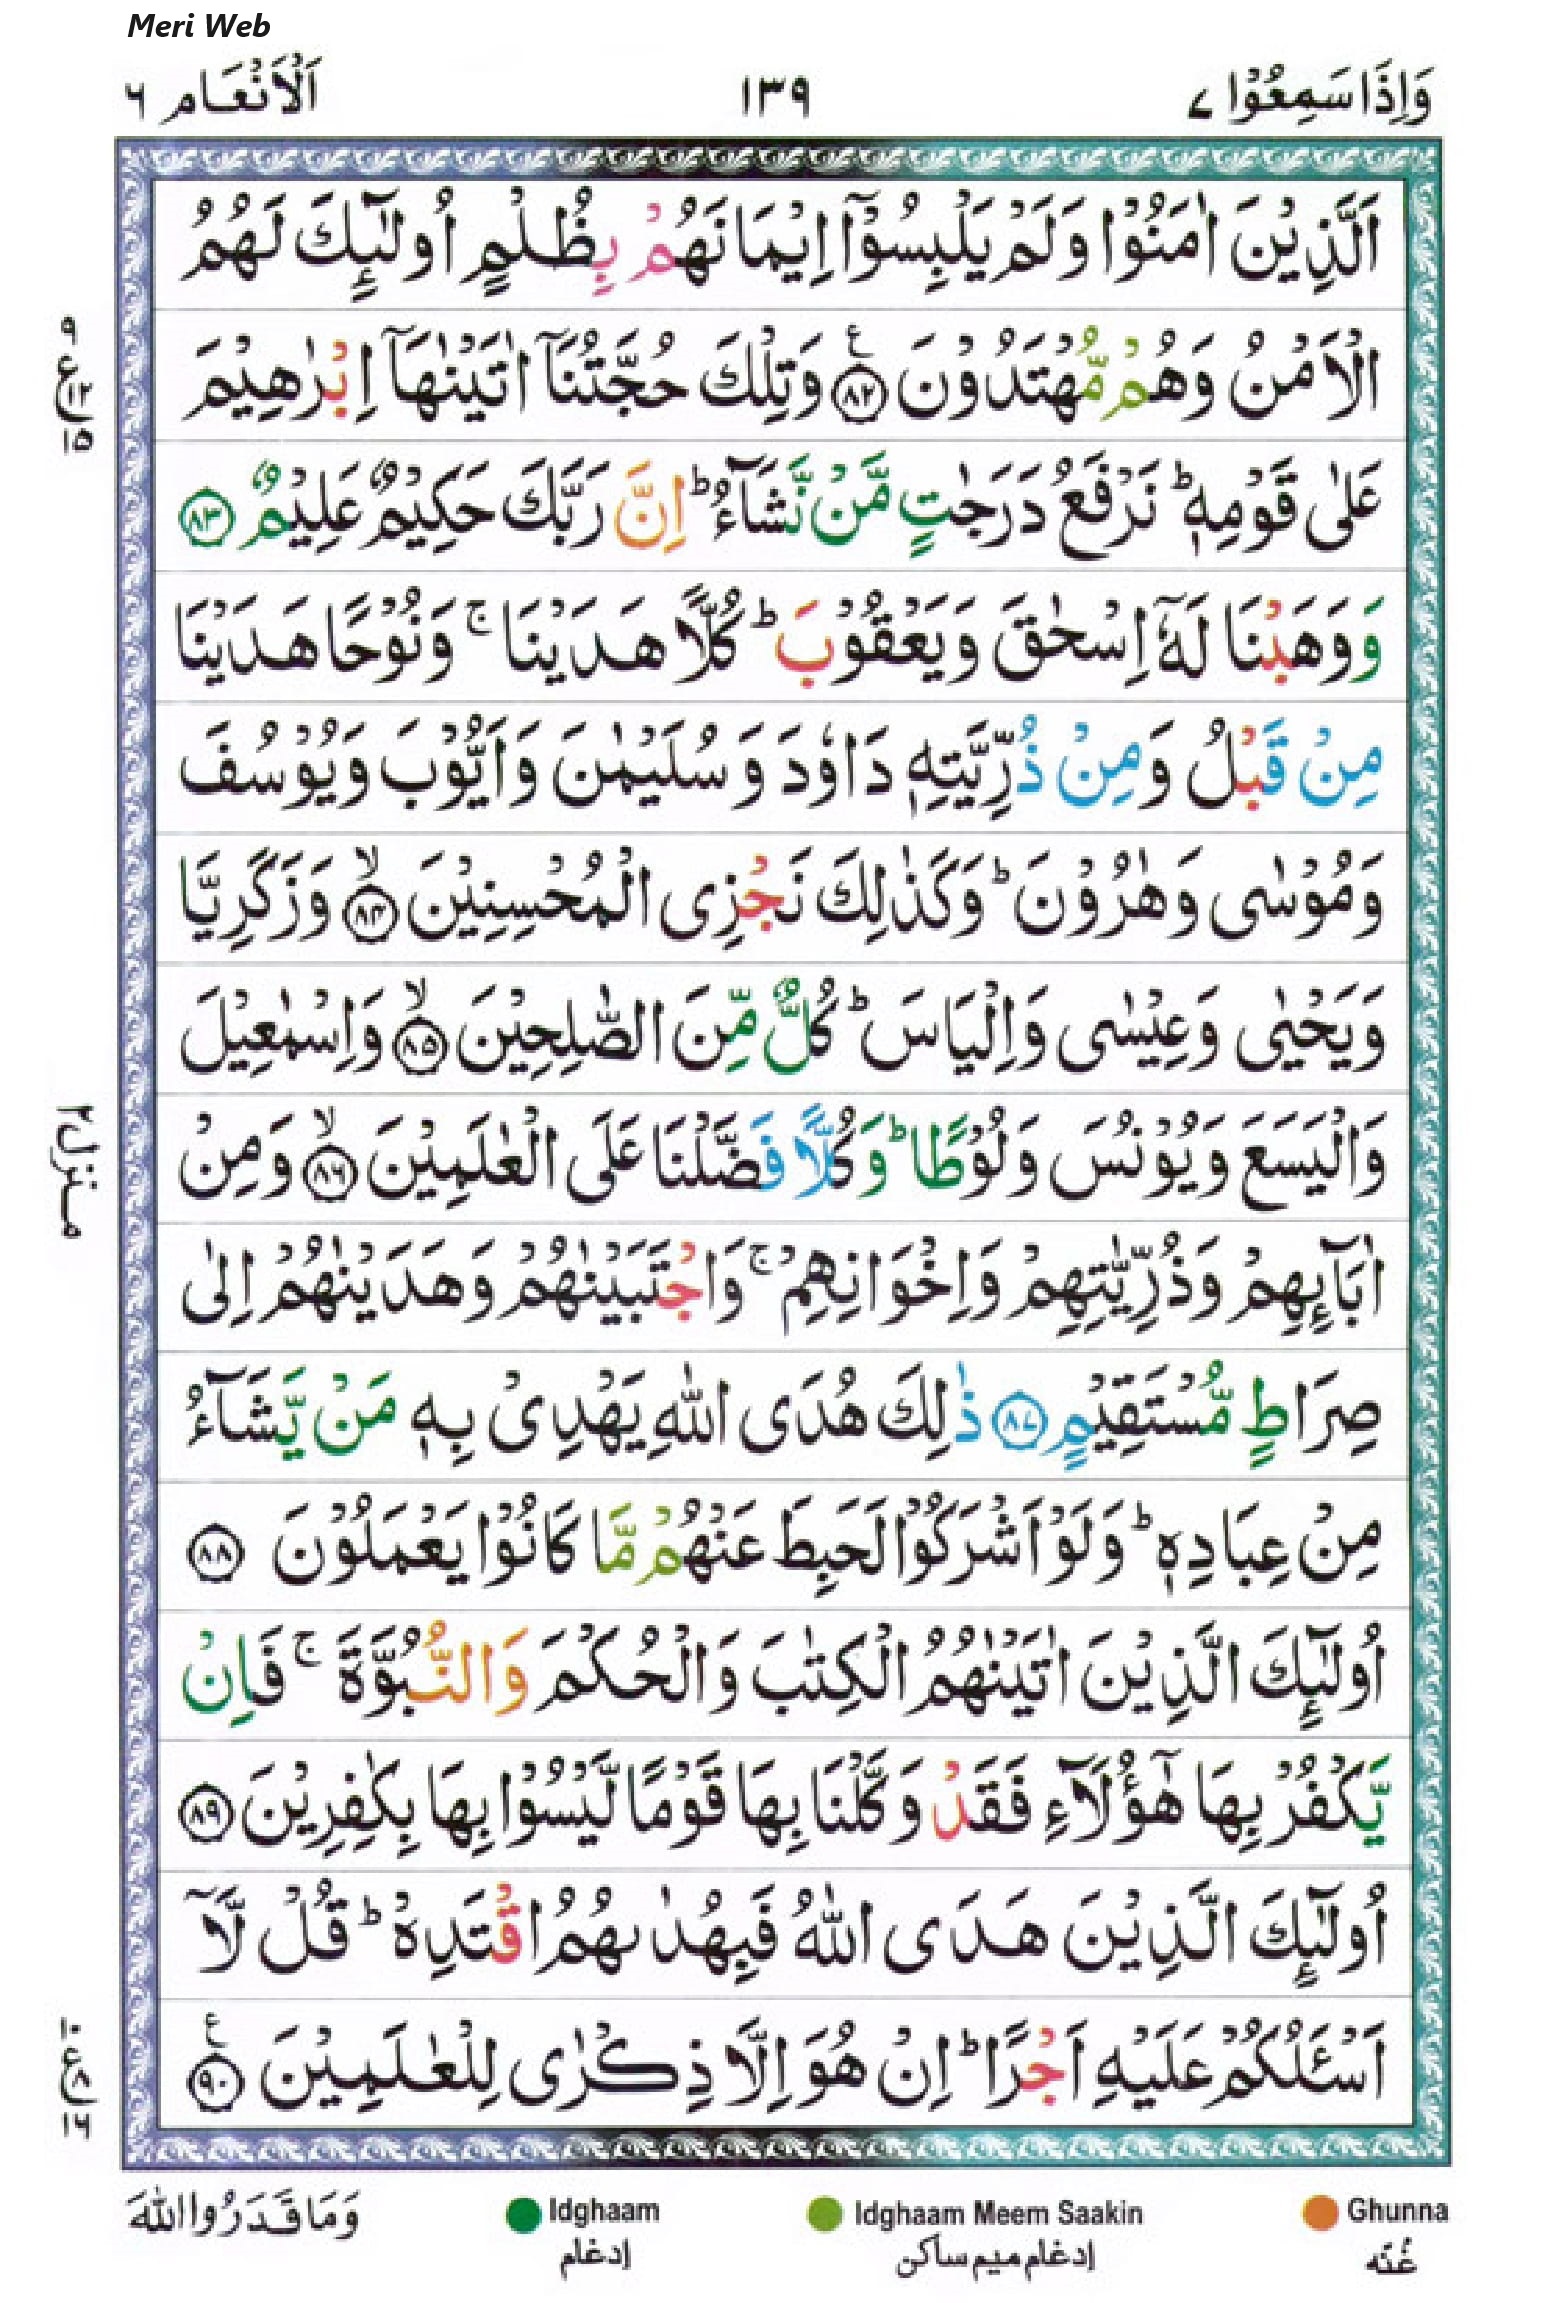 Meri Web
وَاِذَا سَمِعُوْا ٧
١٣٩
اَلْاَنْعَام ٦
اَلَّذِيْنَ اٰمَنُوْا وَلَمْ يَلْبِسُوْۤا اِيْمَانَهُمْ بِظُلْمٍ اُولٰٓئِكَ لَهُمُ
الْاَمْنُ وَهُمْ مُّهْتَدُوْنَ ۧ ﴿٨٢﴾ وَتِلْكَ حُجَّتُنَاۤ اٰتَيْنٰهَاۤ اِبْرٰهِيْمَ
عَلٰى قَوْمِهٖ ؕ نَرْفَعُ دَرَجٰتٍ مَّنْ نَّشَآءُ ؕ اِنَّ رَبَّكَ حَكِيْمٌ عَلِيْمٌ ﴿٨٣﴾
وَوَهَبْنَا لَهٗۤ اِسْحٰقَ وَيَعْقُوْبَ ؕ كُلًّا هَدَيْنَا ۚ وَنُوْحًا هَدَيْنَا
مِنْ قَبْلُ وَمِنْ ذُرِّيَّتِهٖ دَاوٗدَ وَسُلَيْمٰنَ وَاَيُّوْبَ وَيُوْسُفَ
وَمُوْسٰى وَهٰرُوْنَ ؕ وَكَذٰلِكَ نَجْزِى الْمُحْسِنِيْنَ ۙ ﴿٨٤﴾ وَزَكَرِيَّا
وَيَحْيٰى وَعِيْسٰى وَاِلْيَاسَ ؕ كُلٌّ مِّنَ الصّٰلِحِيْنَ ۙ ﴿٨٥﴾ وَاِسْمٰعِيْلَ
وَالْيَسَعَ وَيُوْنُسَ وَلُوْطًا ؕ وَكُلًّا فَضَّلْنَا عَلَى الْعٰلَمِيْنَ ۙ ﴿٨٦﴾ وَمِنْ
اٰبَآئِهِمْ وَذُرِّيّٰتِهِمْ وَاِخْوَانِهِمْ ۚ وَاجْتَبَيْنٰهُمْ وَهَدَيْنٰهُمْ اِلٰى
صِرَاطٍ مُّسْتَقِيْمٍ ﴿٨٧﴾ ذٰلِكَ هُدَى اللّٰهِ يَهْدِىْ بِهٖ مَنْ يَّشَآءُ
مِنْ عِبَادِهٖ ؕ وَلَوْ اَشْرَكُوْا لَحَبِطَ عَنْهُمْ مَّا كَانُوْا يَعْمَلُوْنَ ﴿٨٨﴾
اُولٰٓئِكَ الَّذِيْنَ اٰتَيْنٰهُمُ الْكِتٰبَ وَالْحُكْمَ وَالنُّبُوَّةَ ۚ فَاِنْ
يَّكْفُرْ بِهَا هٰۤؤُلَآءِ فَقَدْ وَكَّلْنَا بِهَا قَوْمًا لَّيْسُوْا بِهَا بِكٰفِرِيْنَ ﴿٨٩﴾
اُولٰٓئِكَ الَّذِيْنَ هَدَى اللّٰهُ فَبِهُدٰىهُمُ اقْتَدِهْ ؕ قُلْ لَّاۤ
اَسْـَٔلُكُمْ عَلَيْهِ اَجْرًا ؕ اِنْ هُوَ اِلَّا ذِكْرٰى لِلْعٰلَمِيْنَ ۧ ﴿٩٠﴾
٩
ع
١٢
١٥
منزل ٢
١٠
ع
٨
١٦
وَمَا قَدَرُوا اللّٰهَ
Idghaam
إدغام
Idghaam Meem Saakin
إدغام ميم ساكن
Ghunna
غُنّه